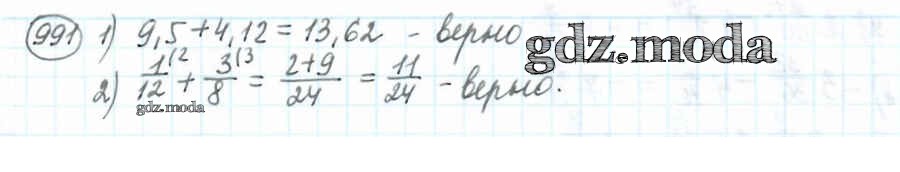 991 1) 9,5 + 4,12 = 13,62 - верно
gdz.moda
2) 1/12 ⁽² + 3/8 ⁽³ = 2+9/24 = 11/24 - верно.
gdz.moda